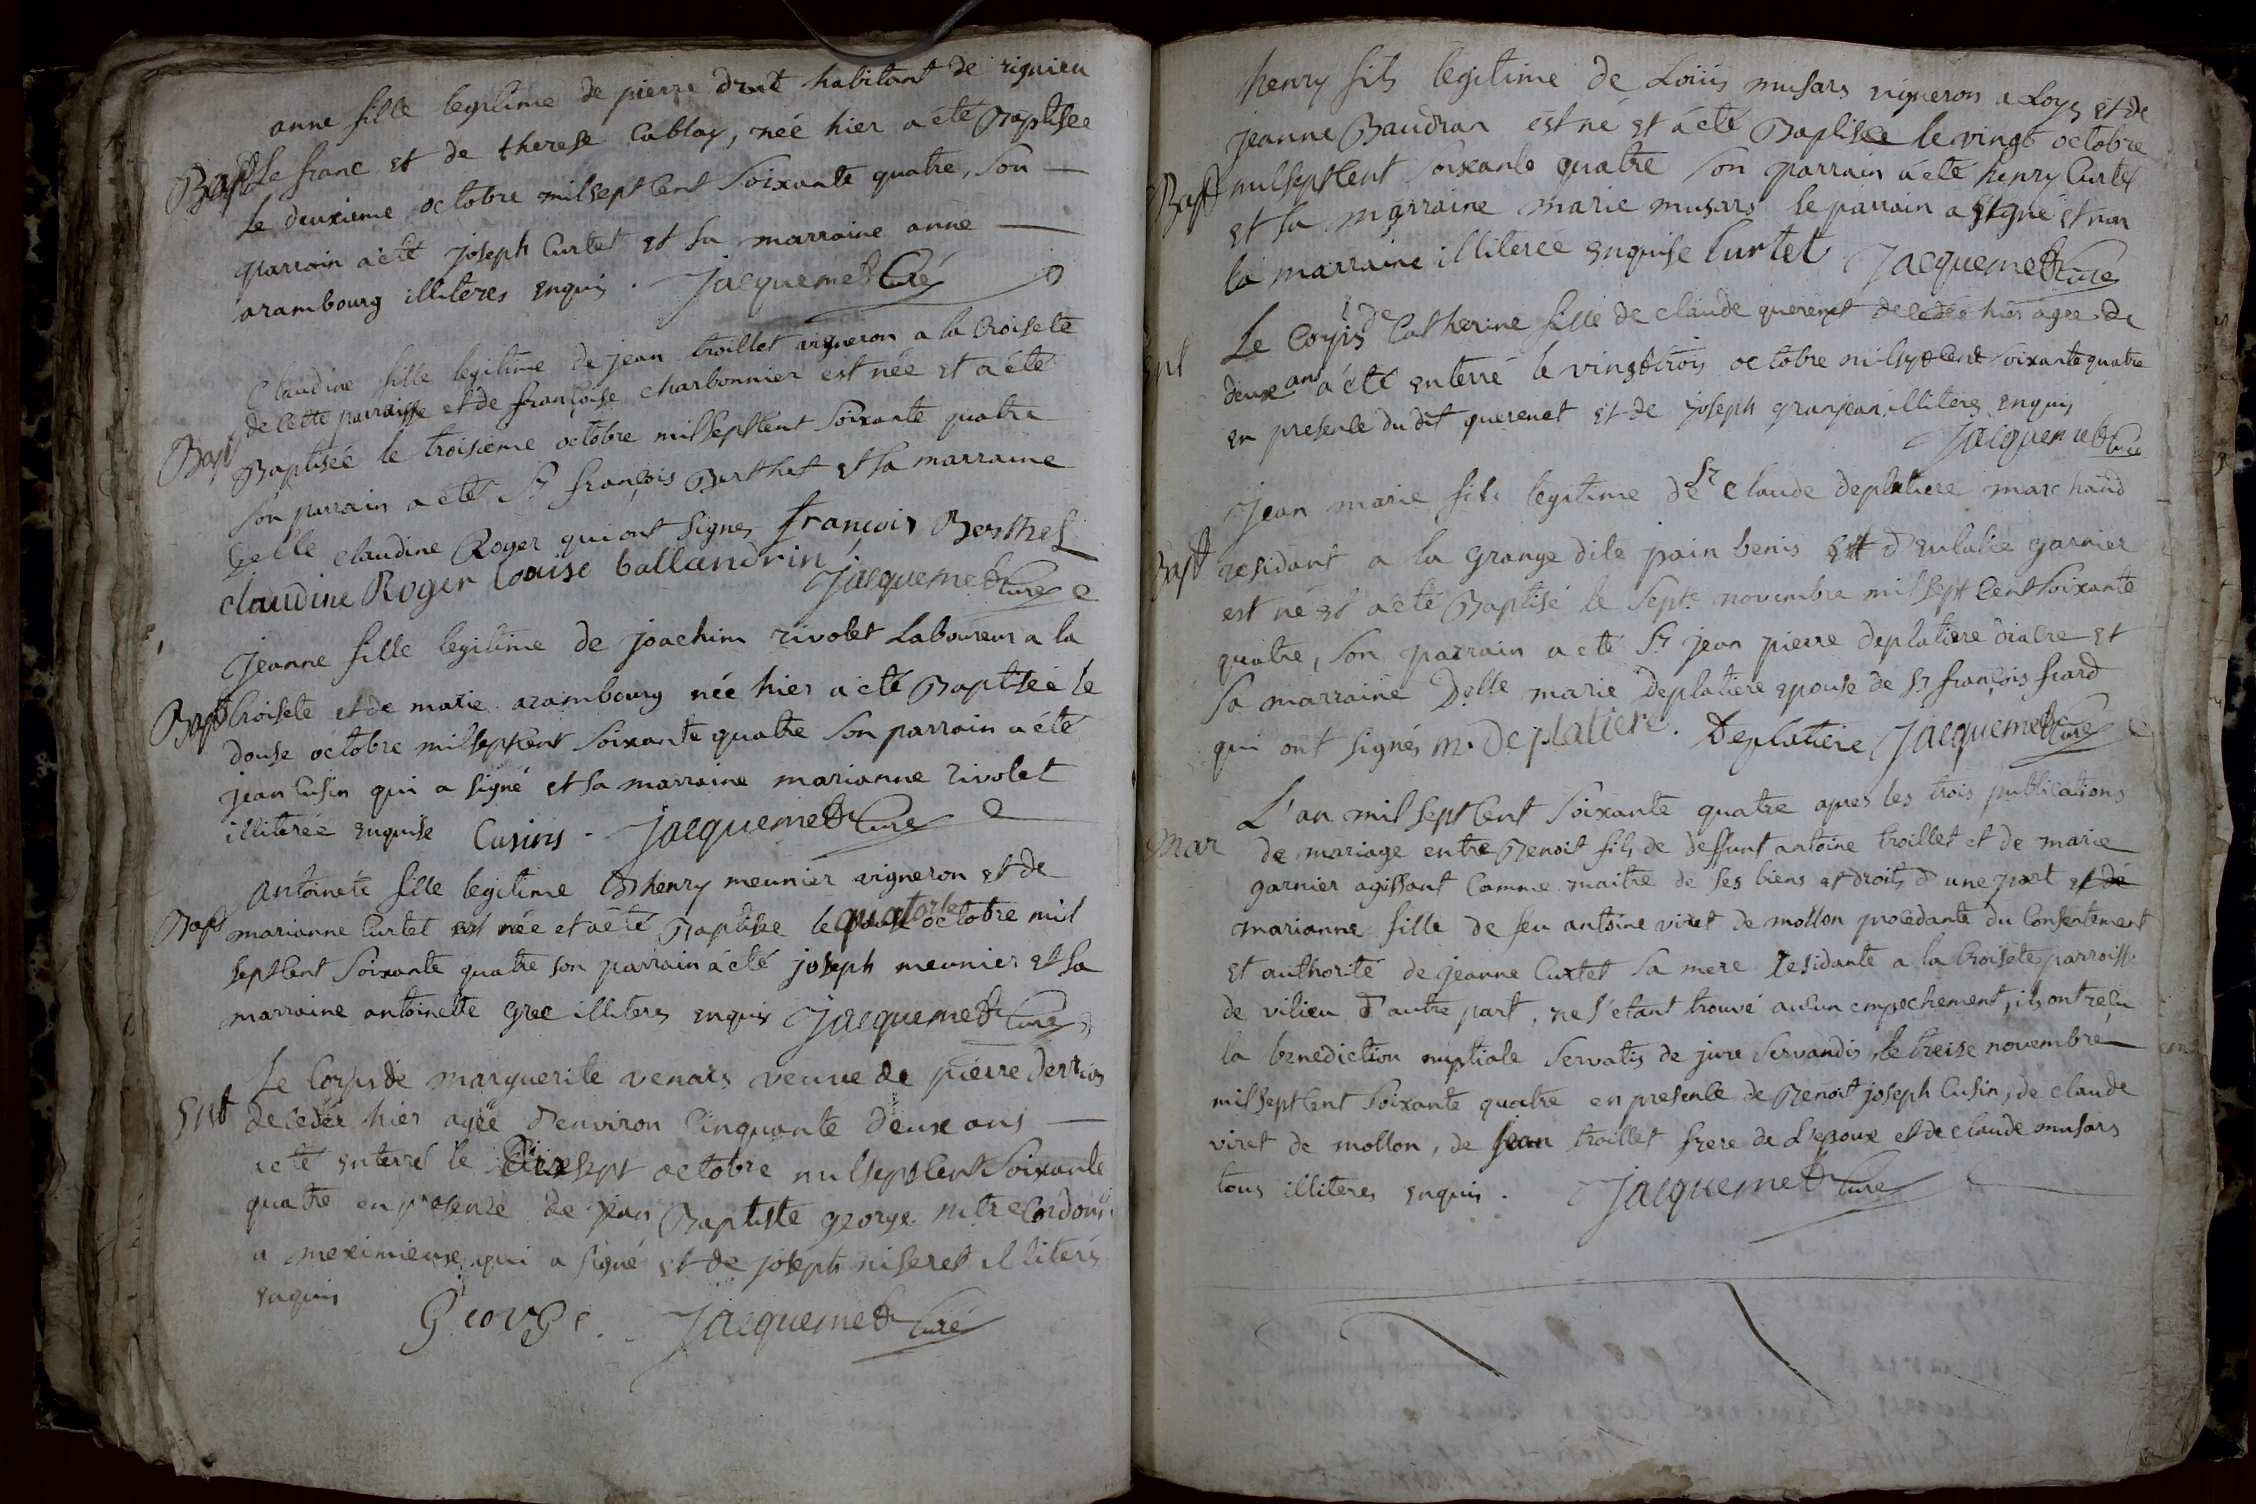 anne fille legitime de pierre drut habitant de rignieu
Bapt le franc et de therese Cablay, née hier a été Baptisée
le deuxieme octobre milseptCent soixante quatre, son
parrain a été joseph Curtet et sa marraine anne
arambourg illiteres enquis. Jacquemet Curé
Claudine fille legitime de jean troillet vigneron a la Croisete
de Cette parroisse et de françoise Charbonnier est née et a été
Bapt Baptisée le troisieme octobre milseptCent soixante quatre
son parrain a été Sr françois Berthet et sa marraine
Delle Claudine Roger qui ont signes françois Berthet
claudine Roger Louise ballandrin Jacquemet Curé
Jeanne fille legitime de joachim rivolet Laboureur a la
Bapt Croisete et de marie arambourg née hier a été Baptisée le
douse octobre milseptCent soixante quatre son parrain a été
jean Cusin qui a signé et sa marraine marianne rivolet
illiterée enquise Cusins. Jacquemet Curé
antoinete fille legitime de henry meunier vigneron et de
Bapt marianne Curtet est née et a été Baptisée le quatorse octobre mil
septCent soixante quatre son parrain a été joseph meunier et sa
marraine antoinette gree illiteres enquis Jacquemet Curé
Le Corps de marguerite venars veuve de pierre derrios
Ent decedée hier agée d'environ Cinquante deux ans
a été enterré le dixsept octobre milseptCent soixante
quatre en presence de jean Baptiste george mtre Cordoni
a meximieux qui a signé et de joseph niseret illiterés
enquis George. Jacquemet Curé
henry fils legitime de Loüis musars vigneron a Loys et de
jeanne Baudran est né et a été Baptisée le vingt octobre
Bapt milseptCent soixante quatre son parrain a été henry Curtet
et sa marraine marie musars le parrain a signé et non
la marraine illiterée enquise Curtet Jacquemet Curé
Le Corps de Catherine fille de claude querenet decedée hier agée de
Ent deux ans a été enterré le vingt trois octobre milseptCent soixante quatre
en presence du dit querenet et de joseph granjean illiteres enquis
Jacquemet Curé
Jean marie fils legitime de Sr Claude deplatiere marchand
Bapt residant a la grange dite pain benis et d'eulalie garnier
est né et a été Baptisé le sept novembre milseptCent soixante
quatre, son parrain a été Sr jean pierre deplatiere diacre et
sa marraine Delle marie deplatiere epouse de Sr françois fiard
qui ont signés m. Deplatiere. Deplatiere Jacquemet Curé
L'an milseptCent soixante quatre apres les trois publications
Mar de mariage entre Benoit fils de deffunt antoine troillet et de marie
garnier agissant Comme maitre de ses biens et droits d'une part et de
marianne fille de feu antoine viret de mollon procedante du Consentement
et authorité de jeanne Curtet sa mere residante a la Croisete parroisse
de vilieu d'autre part, ne s'etant trouvé aucun empechement, ils ont reçu
la benediction nuptiale servatis de jure servandis, le treise novembre
milseptCent soixante quatre en presence de Benoit joseph Cusin, de claude
viret de mollon, de jean troillet frere de L'epoux et de claude musars
tous illiteres enquis. Jacquemet Curé